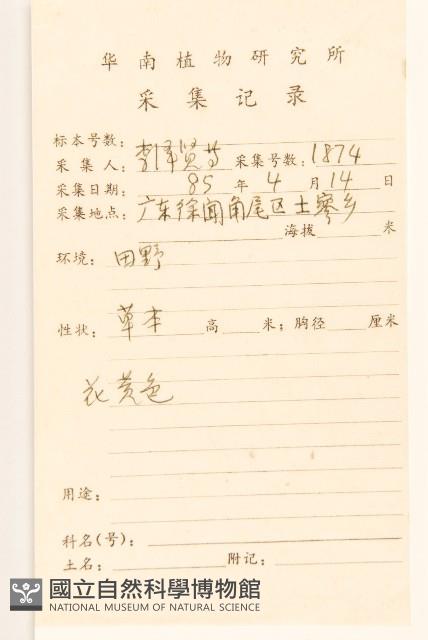 华南植物研究所
采集记录
标本号数:
采集人: 李泽贤等 采集号数: 1874
采集日期: 85 年 4 月 14 日
采集地点: 广东徐闻角尾区土寮乡
海拔 米
环境: 田野
性状: 草本 高 米; 胸径 厘米
花黄色
用途:
科名(号):
土名: 附记:
國立自然科學博物館
NATIONAL MUSEUM OF NATURAL SCIENCE